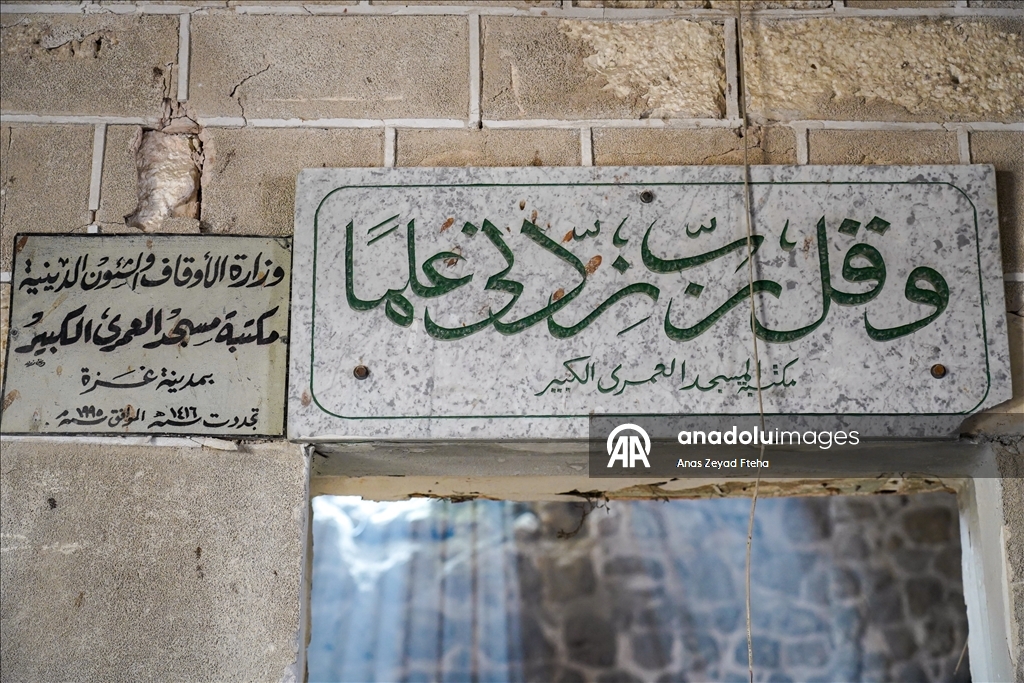 وقل رب زدني علمًا
مكتبة المسجد العمري الكبير
وزارة الأوقاف والشئون الدينية
مكتبة مسجد العمري الكبير
بمدينة غزة
تجددت سنة ١٤١٦ هـ الموافق سنة ١٩٩٥ م.
AA anadoluimages
Anas Zeyad Fteha